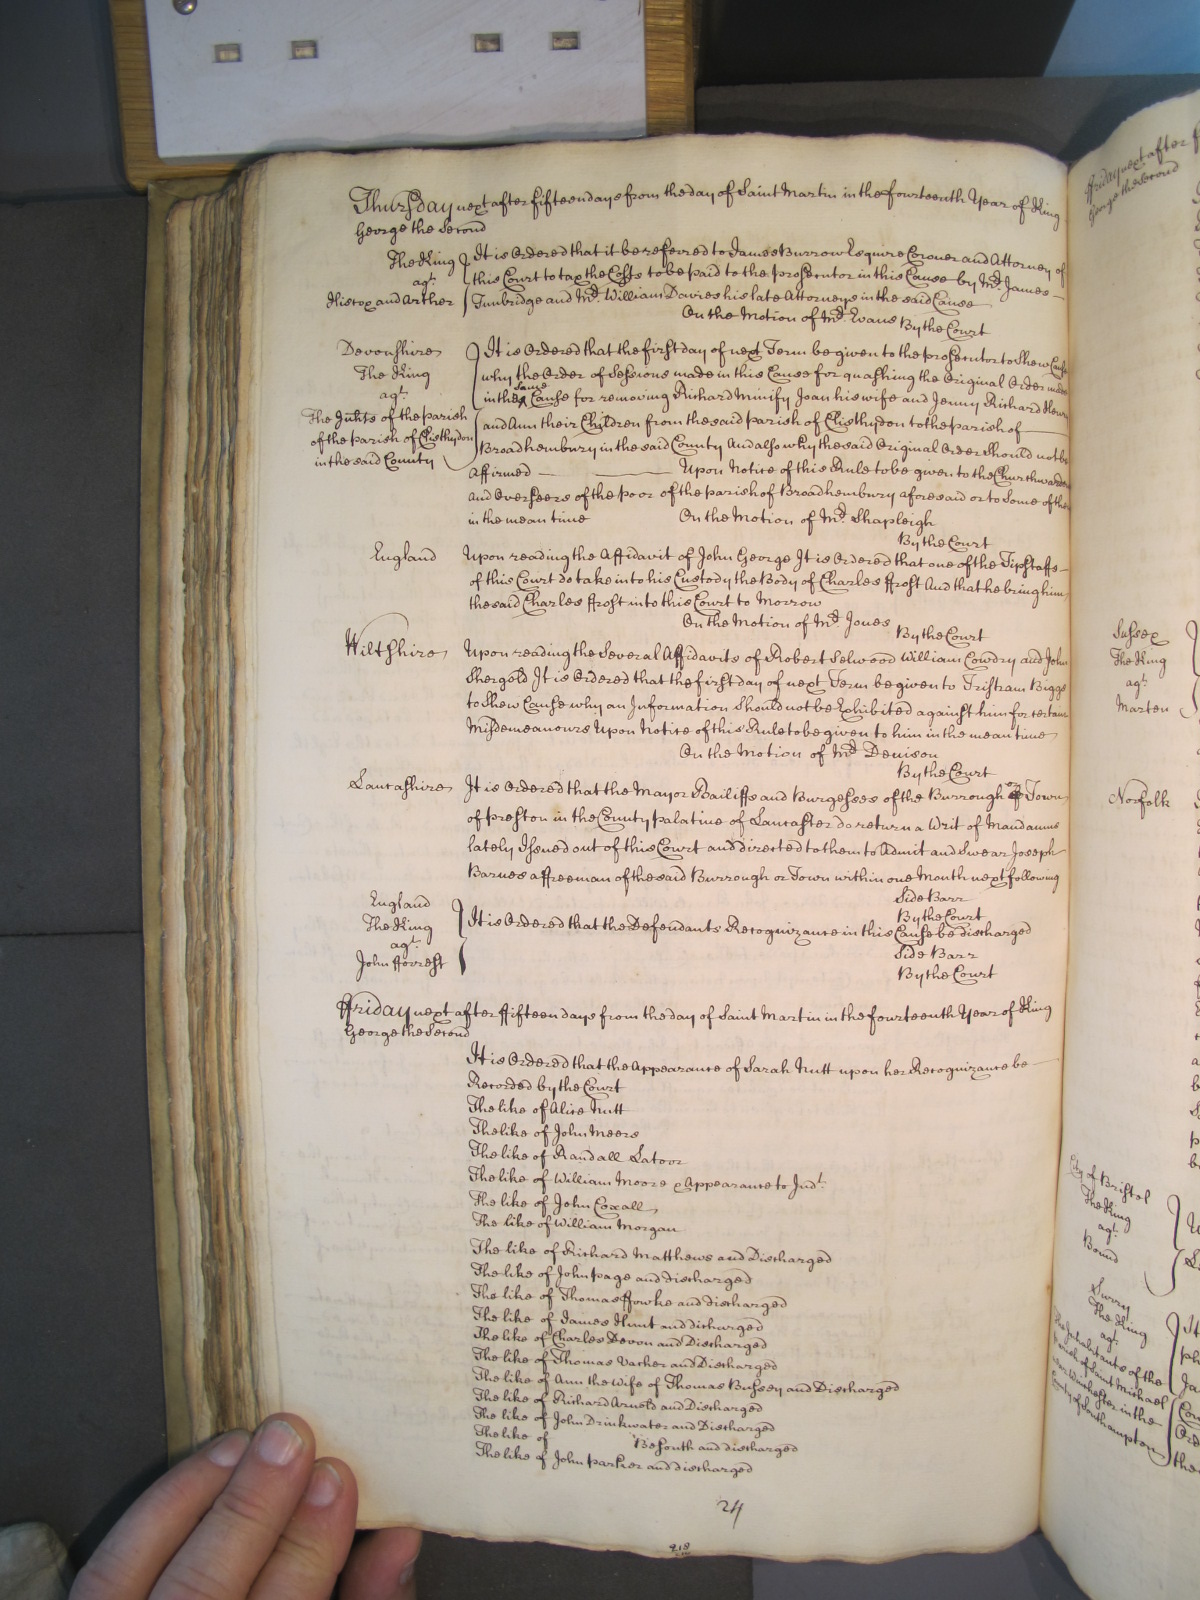 Thursday next after fifteen days from the day of Saint Martin in the fourteenth Year of King
George the Second
The King
agt.
Hiscox and Arther
It is Ordered that it be referred to James Burrow Esquire Coroner and Attorney of
this Court to tax the Costs to be paid to the prosecutor in this Cause by Mr. James
Tunbridge and Mr. William Davies his late Attorneys in the said Cause
On the Motion of Mr. Evans By the Court
Devonshire
The King
agt.
The Inhits of the parish
of the parish of Clisthydon
in the said County
It is Ordered that the first day of next Term be given to the prosecutor to Shew Cause
why the Order of Sessions made in this Cause for quashing the Original Order made
in the Same Cause for removing Richard Minify Joan his wife and Jenny Richard Henry
and Ann their Children from the said parish of Clisthydon to the parish of
Broadhembury in the said County And also why the said Original Order Should not be
Affirmed Upon Notice of this Rule to be given to the Churchwardens
and Overseers of the poor of the parish of Broadhembury aforesaid or to Some of them
in the mean time On the Motion of Mr. Shapleigh
By the Court
England
Upon reading the Affidavit of John George It is Ordered that one of the Tipstaffs
of this Court do take into his Custody the Body of Charles ffrost And that he bring him
the said Charles ffrost into this Court to Morrow
On the Motion of Mr. Jones
By the Court
Wiltshire
Upon reading the Several Affidavits of Robert Selwood William Cowdry and John
Shergold It is Ordered that the first day of next Term be given to Tristram Biggs
to Shew Cause why an Information Should not be Exhibited against him for certain
Misdemeanours Upon Notice of this Rule to be given to him in the mean time
On the Motion of Mr. Denison
By the Court
Lancashire
It is Ordered that the Mayor Bailiffs and Burgesses of the Burrough or Town
of preston in the County palatine of Lancaster do return a Writ of Mandamus
lately Issued out of this Court and directed to them to Admit and Swear Joseph
Barnes a ffreeman of the said Burrough or Town within one Month next following
Side Barr
By the Court
England
The King
agt.
John fforrest
It is Ordered that the Defendants Recognizance in this Cause be discharged
Side Barr
By the Court
ffriday next after ffifteen days from the day of Saint Martin in the fourteenth Year of King
George the Second
It is Ordered that the Appearance of Sarah Nutt upon her Recognizance be
Recorded by the Court
The like of Alice Nutt
The like of John Meers
The like of Randall Latoor
The like of William Moore & Appearance to Indt.
The like of John Coxall
The like of William Morgan
The like of Richard Matthews and Discharged
The like of John page and discharged
The like of Thomas ffowke and discharged
The like of James Hunt and discharged
The like of Charles Devon and Discharged
The like of Thomas Vacher and Discharged
The like of Ann the Wife of Thomas Bussey and Discharged
The like of Richard Arnold and Discharged
The like of John Drinkwater and Discharged
The like of Besouth and discharged
The like of John parker and discharged
24
218
ffriday next after
George the Second
Sussex
The King
agt.
Marten
Norfolk
City of Bristol
The King
agt.
Bound
Surry
The King
agt.
The Inhabitants of the
parish of Saint Michael
near Winchester in the
County of Southampton